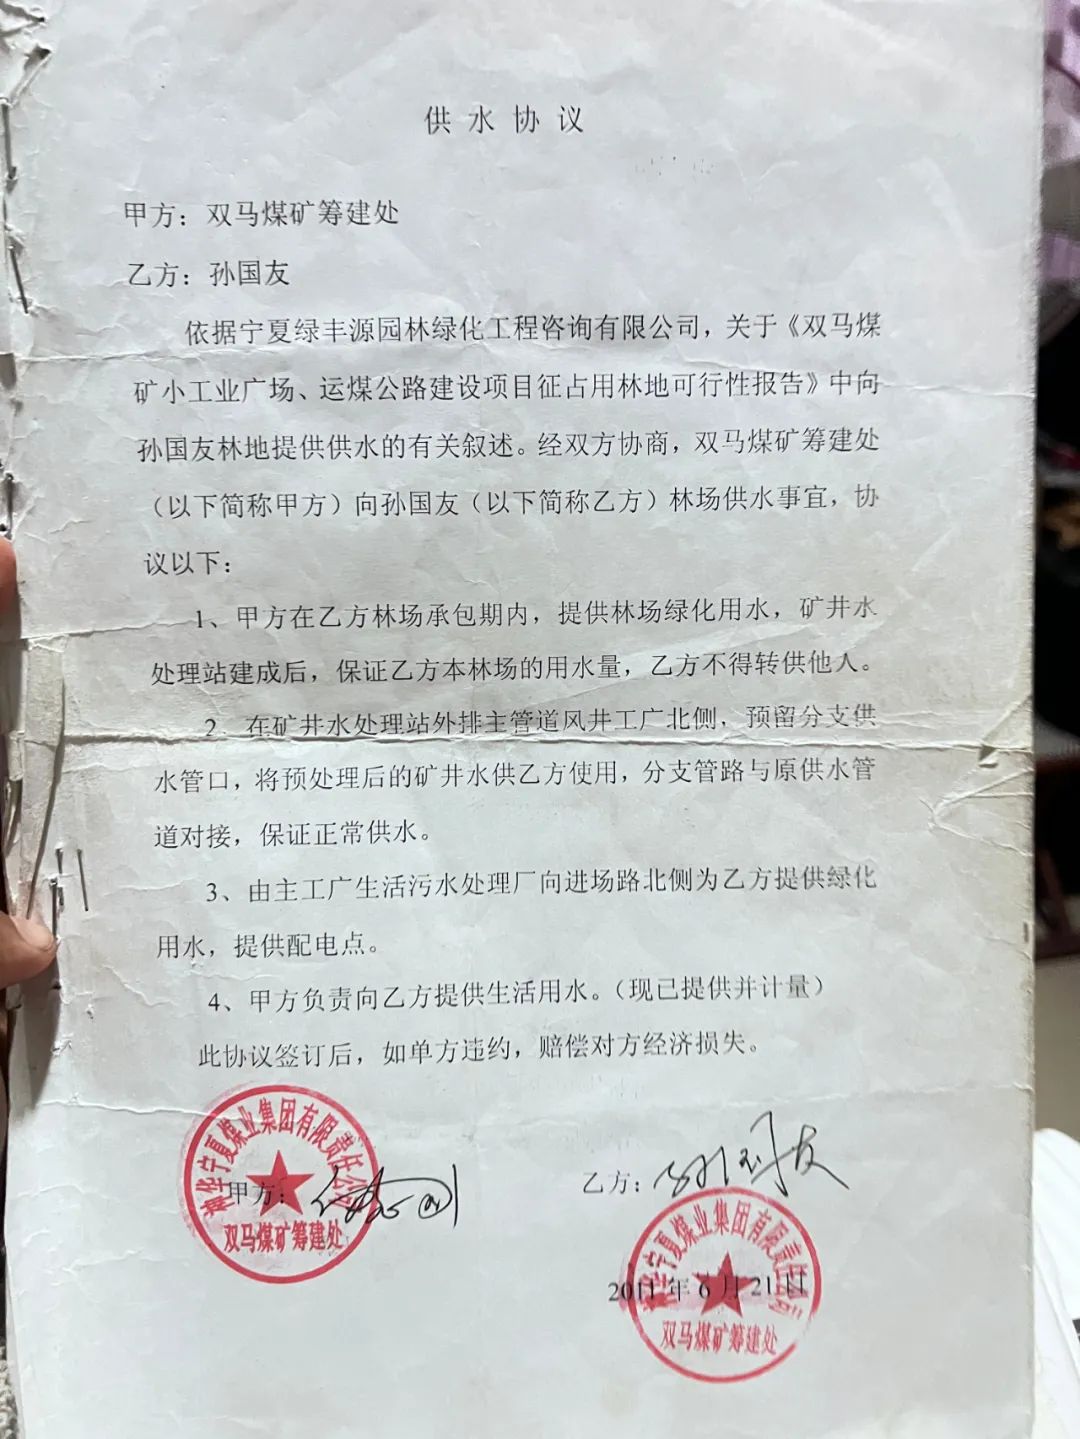 供水协议
甲方：双马煤矿筹建处
乙方：孙国友
依据宁夏绿丰源园林绿化工程咨询有限公司，关于《双马煤
矿小工业广场、运煤公路建设项目征占用林地可行性报告》中向
孙国友林地提供供水的有关叙述。经双方协商，双马煤矿筹建处
（以下简称甲方）向孙国友（以下简称乙方）林场供水事宜，协
议以下：
1、甲方在乙方林场承包期内，提供林场绿化用水，矿井水
处理站建成后，保证乙方本林场的用水量，乙方不得转供他人。
2、在矿井水处理站外排主管道风井工广北侧，预留分支供
水管口，将预处理后的矿井水供乙方使用，分支管路与原供水管
道对接，保证正常供水。
3、由主工广生活污水处理厂向进场路北侧为乙方提供绿化
用水，提供配电点。
4、甲方负责向乙方提供生活用水。（现已提供并计量）
此协议签订后，如单方违约，赔偿对方经济损失。
神华宁夏煤业集团有限责任公司
甲方：
双马煤矿筹建处
乙方：孙国友
神华宁夏煤业集团有限责任公司
2011年6月21日
双马煤矿筹建处